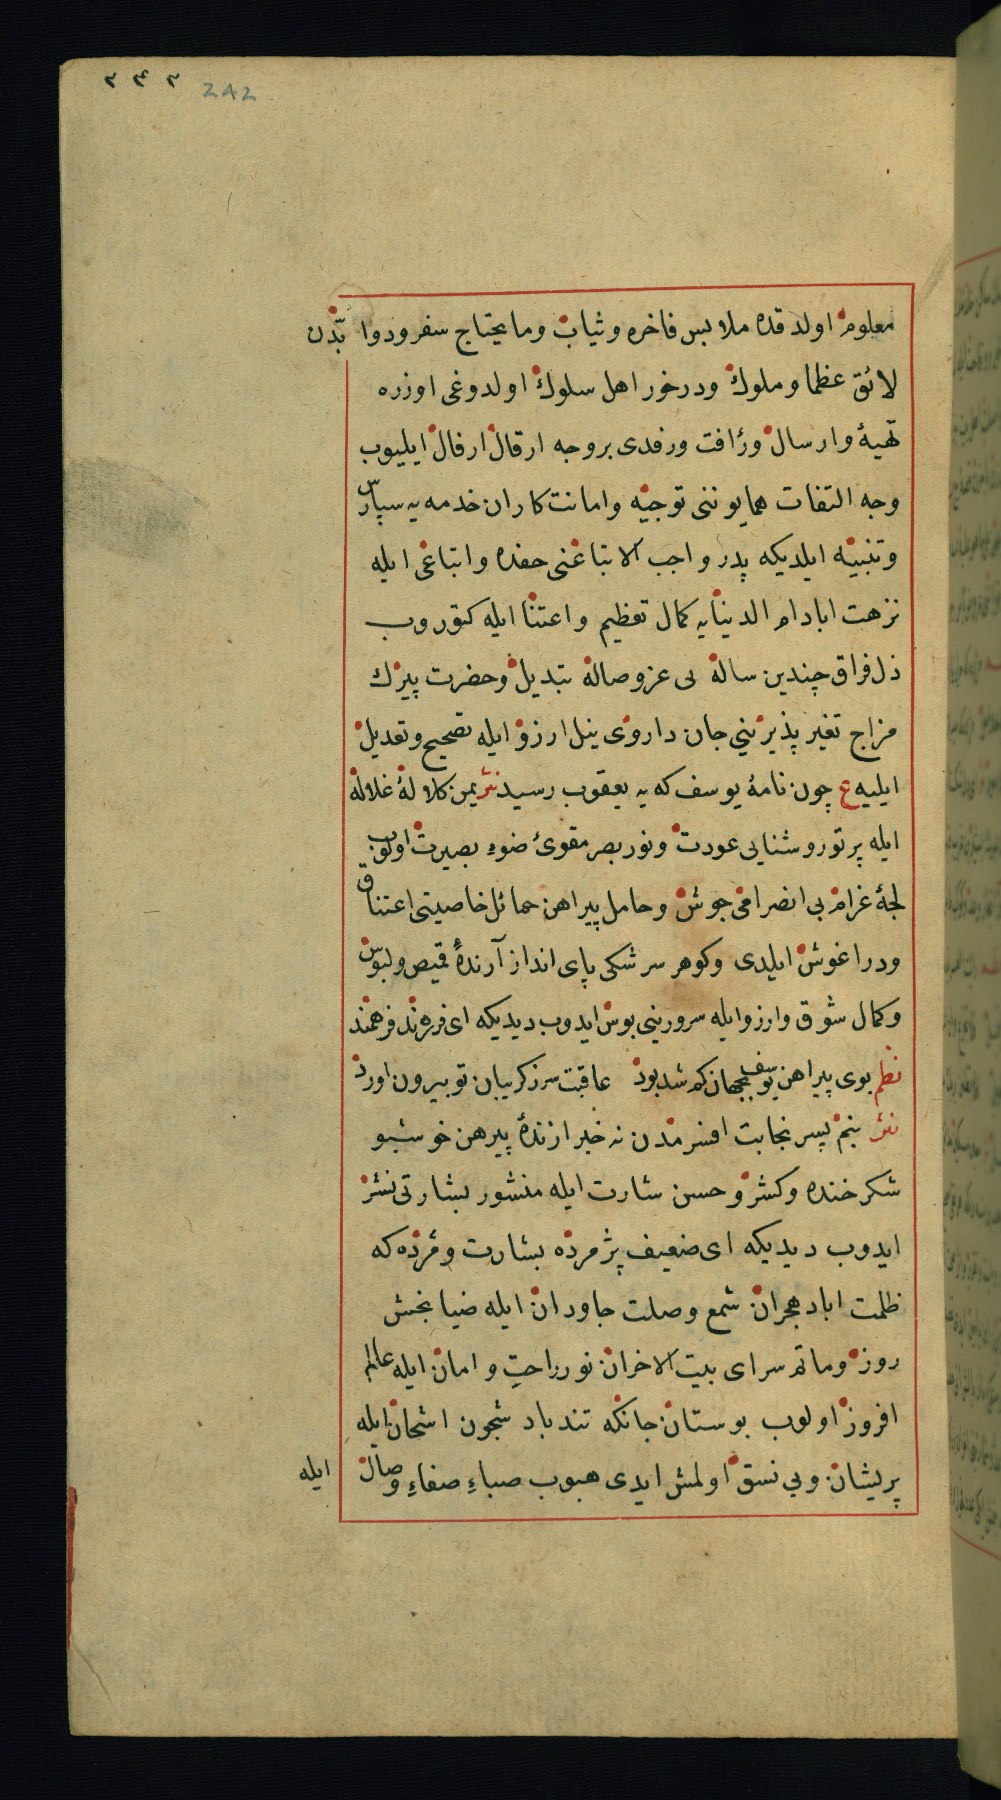 ٢٤٢ 242
معلوم اولدقده ملابس فاخره وثياب وما يحتاج سفر ودوابدن
لائق عظما وملوك ودرخور اهل سلوك اولدوغى اوزره
تهيهٔ وارسال ورأفت ورفدى بروجه ارقال ارفال ايليوب
وجه التفات همايوننى توجيه وامانت كاران خدمه يه سپارش
وتنبيه ايلديكه پدر واجب الاتباعنى حفده واتباعى ايله
نزهت اباد ام الدنيايه كمال تعظيم واعتنا ايله كتوروب
ذل فراق چندين ساله يى عز وصاله تبديل وحضرت پيرك
مزاج تغير پذيرينى جان داروى نيل ارزو ايله تصحيح وتعديل
ايليه ع چون نامهٔ يوسف كه به يعقوب رسيد نثر يمن كلالهٔ غلاله
ايله پرتو روشنايى عودت ونور بصر مقوئ ضوء بصيرت اولوب
لجهٔ غرام بى انصرامى جوش وحامل پيراهن حمائل خاصيتى اعتناق
ودراغوش ايلدى وكوهر سرشكى پاى انداز آرندهٔ قميص ولبوس
وكمال شوق وارزو ايله سرورينى بوس ايدوب ديديكه اى فرزند فرهمند
نظم بوى پيراهن يوسف بجهان كم شد بود عاقبت سر زكريبان تو بيرون اورد
نثر بنم پسر نجابت افسرمدن نه خبر ارندهٔ پيرهن خوشبو
شكرخنده وكشر وحسن شارت ايله منشور بشارتى نشر
ايدوب ديديكه اى ضعيف پژمرده بشارت ومژده كه
ظلمت اباد هجران شمع وصلت جاودان ايله ضيا بخش
روز وماتم سراى بيت الاحزان نور راحت وامان ايله عالم
افروز اولوب بوستان جانكه تندباد شجون اشجان ايله
پريشان وبى نسق اولمش ايدى هبوب صباء صفاء وصال
ايله